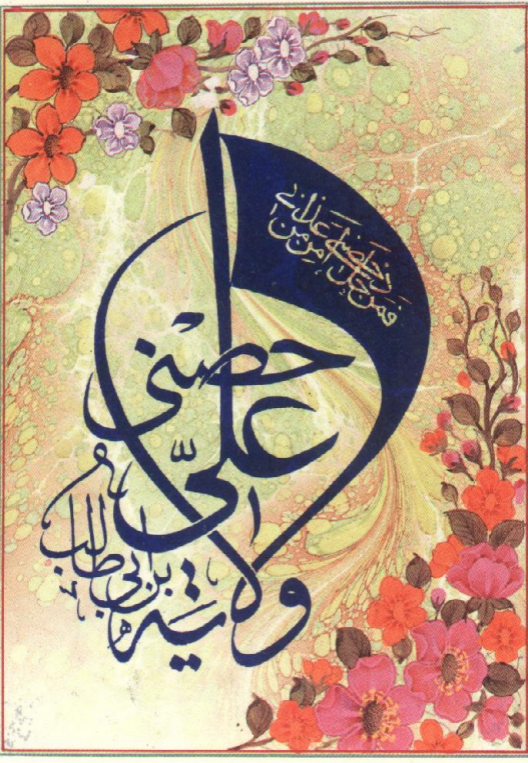 ولاية
علىّ
بن ابى طالب
حصنى
فمن دخل حصنى امن من عذابى